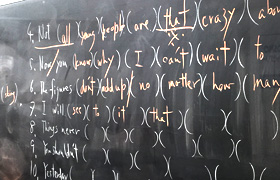 4. Not (all)(young)(people)(are)(that)(crazy)(abou
5. Now you (know)(why)(I)(can't)(wait) to
6. The figures (don't)(add up)(no)(matter)(how)(man
7. I will (see)(to)(it)(that)( )(
8. Things never ( )( )( )( )(
9. You shouldn't ( )( )( )( )(
10. Yesterday ( )( )( )(